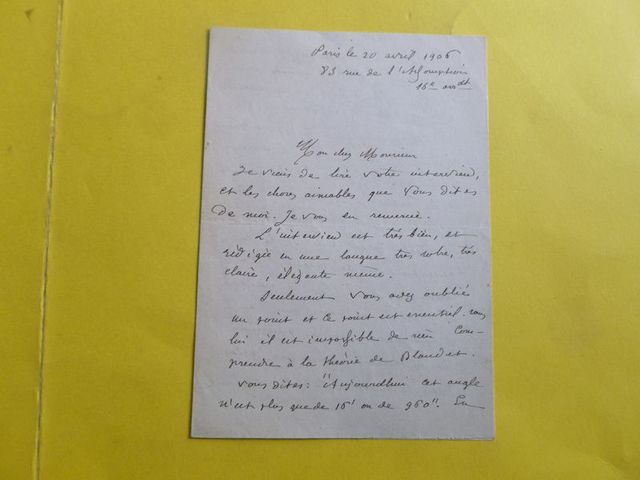 Paris le 20 avril 1906
83 rue de l'Assomption
16e arrdt
Mon cher Monsieur
Je viens de lire votre interview,
et les choses aimables que vous dites
de moi. Je vous en remercie.
L'interview est très bien, et
rédigée en une langue très sobre, très
claire, élégante meme.
Seulement vous avez oublié
un point et ce point est essentiel. sans
lui il est impossible de rien com-
prendre à la théorie de Blandet.
Vous dites: "Aujourdhui cet angle
n'est plus que de 16' ou de 960". En